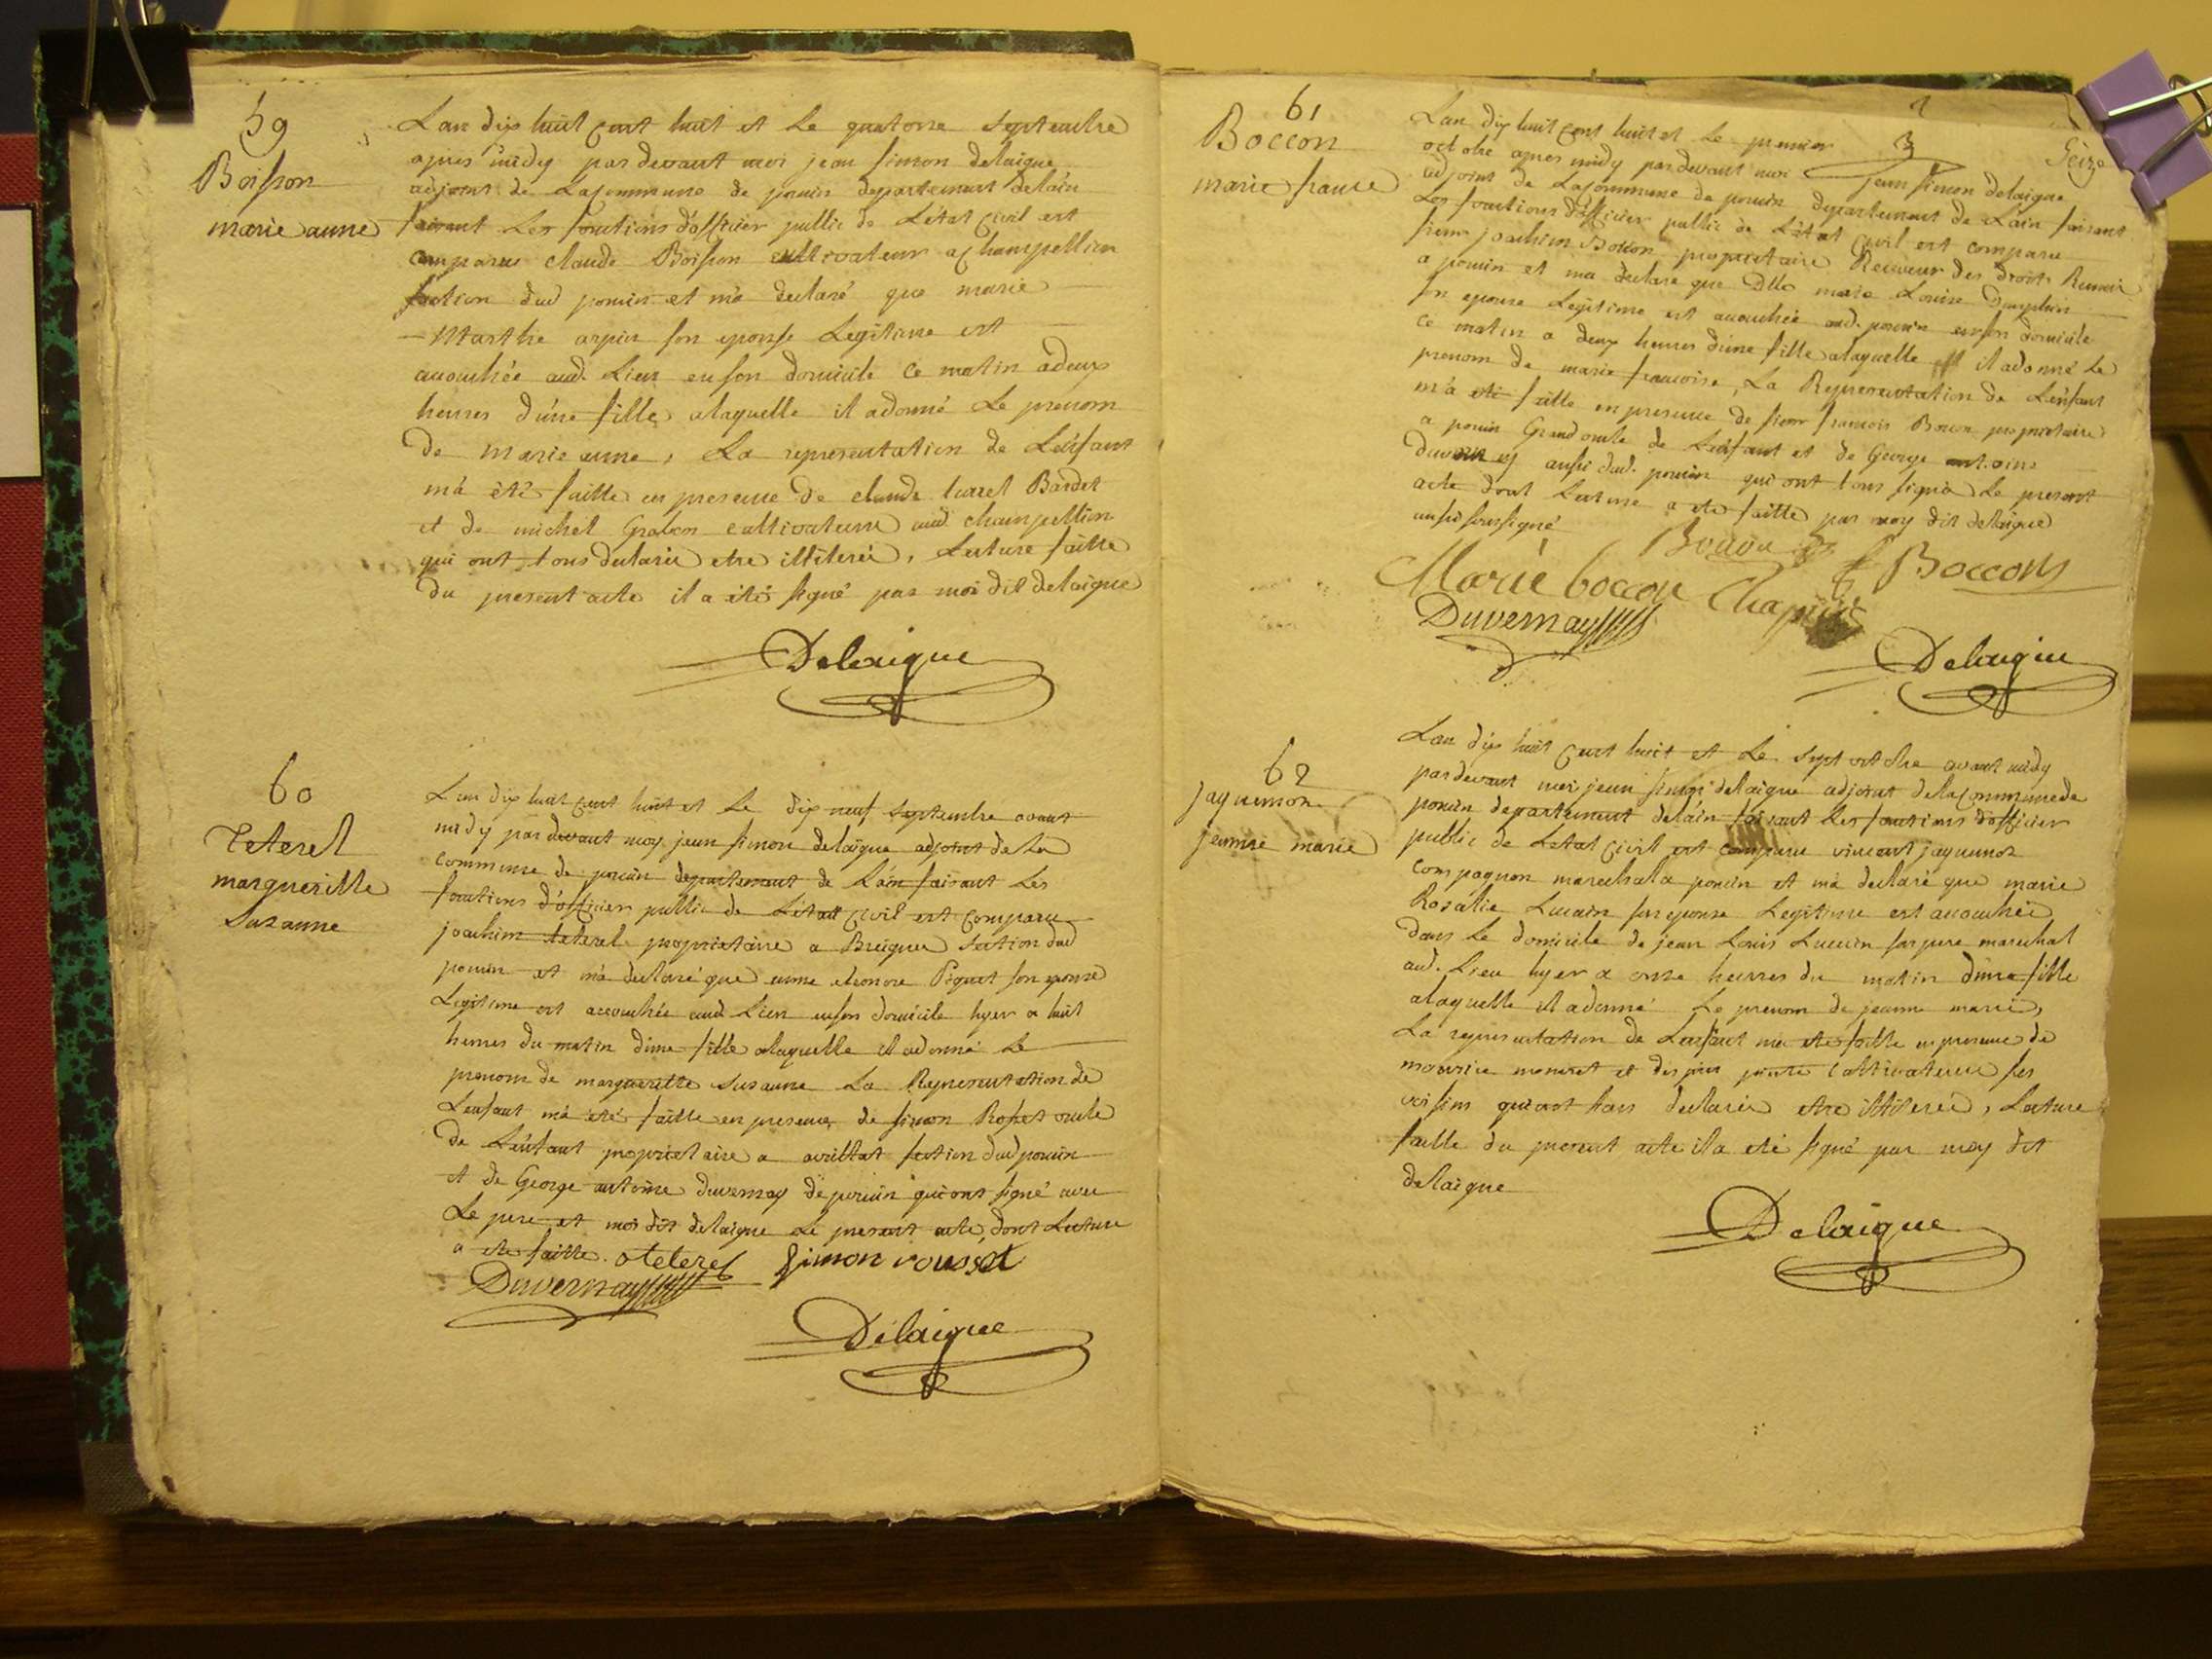 59
Boisson
marie anne
Lan dix huit cent huit et le quatorze septembre
apres midy par devant moi jean simon delaigue
adjoint de La Commune de poncin departement de lain
faisant Les fonctions d'officier public de L'état Civil est
comparu claude Boisson cultivateur a champeillon
section dud poncin et m'a declaré que marie
Marthe arpin son epouse Legitime est
accouchée aud. Lieu en son domicile ce matin a deux
heures d'une fille a laquelle il a donné Le prenom
de marie anne, La representation de L'enfant
m'a été faitte en presence de claude Bardet
et de michel cultivateurs aud.
qui ont tous declaré etre illiteré, Lecture faitte
du present acte il a été signé par moi dit delaigue
Delaigue
60
Teterel
margueritte
Suzanne
Lan dix huit cent huit et Le dix neuf septembre avant
midy par devant moy jean simon delaigue adjoint de La
commune de poncin departement de L'ain faisant Les
fonctions d'officier public de L'état Civil est comparu
joachim teterel proprietaire a Breignes section dud
poncin et m'a declaré que anne eleonore son epouse
Legitime est accouchée aud Lieu en son domicile hyer a huit
heures du matin d'une fille a laquelle il a donné Le
prenom de margueritte Suzanne La Representation de
L'enfant m'a été faitte en presence de simon Rosset oncle
de L'enfant proprietaire a avrillat section dud poncin
et de George antoine duvernay de poncin qui ont signé avec
Le pere et moi dit delaigue Le present acte, dont Lecture
a ete faitte. teterel Simon rousset
Duvernay
Delaigue
61
Boccon
marie france
Seize
Lan dix huit cent huit et Le premier
octobre apres midy par devant moi jean simon delaigue
adjoint de La Commune de poncin departement de L'ain faisant
Les fonctions d'officier public de L'état Civil est comparu
sieur joachim Bocon proprietaire Receveur des droits Reunis
a poncin et ma declare que Dlle marie Louise
son epouse Legitime est accouchée aud. poncin en son domicile
ce matin a deux heures d'une fille a laquelle il a donné Le
prenom de marie francoise, La Representation de L'enfant
m'a été faitte en presence de sieur francois Bocon proprietaire
a poncin Grand oncle de L'enfant et de George antoine
duvernay aussi dud. poncin qui ont tous signé Le present
acte dont Lecture a ete faitte par moy dit delaigue
aussi soussigné
Bocon
Marie boccon Boccon
Duvernay
Delaigue
62
jaquemon
jeanne marie
Lan dix huit cent huit et Le sept octobre avant midy
par devant moi jean simon delaigue adjoint de la Commune de
poncin departement de L'ain faisant Les fonctions d'officier
public de L'état Civil est comparu vincent jaquemon
compagnon marechal a poncin et m'a declaré que marie
Rosalie Lucain son epouse Legitime est accouchée
dans Le domicile de jean Louis Lucain son pere marechal
aud. Lieu hyer a onze heures du matin d'une fille
a laquelle il a donné Le prenom de jeanne marie,
La representation de L'enfant m'a ete faitte en presence de
mourice et cultivateurs ses
voisins qui ont tous declaré etre illiteré, Lecture
faitte du present acte il a eté signé par moy dit
delaigue
Delaigue